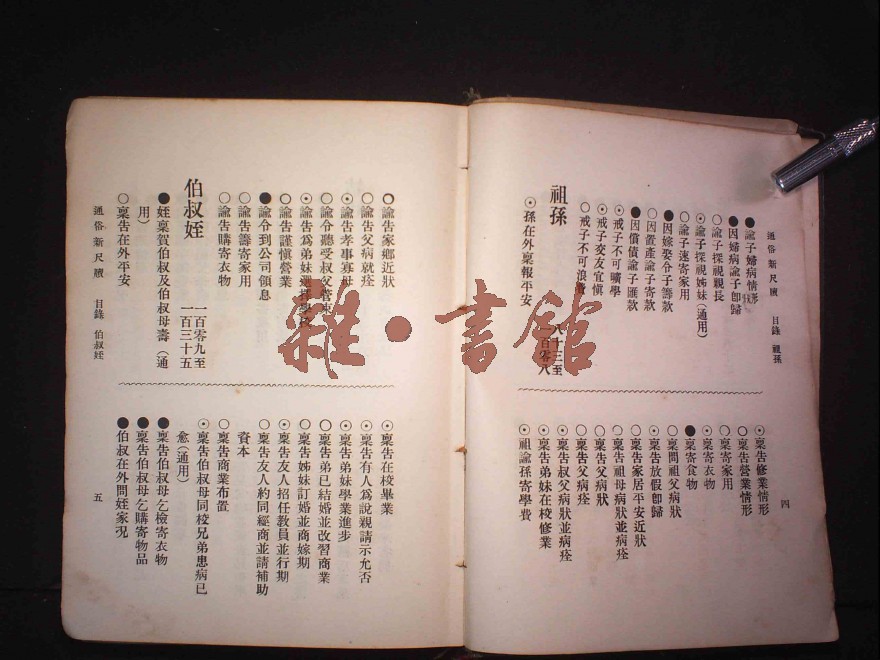 通俗新尺牘　目錄　祖孫
四
●諭子婦病情形
●因婦病諭子卽歸
○諭子探視親長
⊙諭子探視姊妹（通用）
○諭子速寄家用
●因嫁娶令子籌款
○因置產諭子寄款
●因償債諭子匯款
⊙戒子不可曠學
⊙戒子交友宜愼
○戒子不可浪費
祖孫
八十三至
一百零八
⊙孫在外稟報平安
⊙稟告修業情形
○稟告營業情形
○稟寄家用
○稟寄衣物
●稟寄食物
○稟問祖父病狀
⊙稟告放假卽歸
○稟告家居平安近狀
○稟告祖母病狀並病痊
○稟告父病狀
○稟告父病痊
⊙稟告叔父病狀並病痊
⊙稟告弟妹在校修業
⊙祖諭孫寄學費
○諭告家鄉近狀
○諭告父病就痊
⊙諭告孝事寡母
○諭令聽受叔父管束
⊙諭告爲弟妹選擇學校
○諭告謹愼營業
●諭令到公司領息
○諭告籌寄家用
○諭告購寄衣物
伯叔姪
一百零九至
一百三十五
●姪稟賀伯叔及伯叔母壽（通
用）
○稟告在外平安
⊙稟告在校畢業
⊙稟告有人爲說親請示允否
⊙稟告弟妹學業進步
○稟告弟已結婚並改習商業
○稟告姊妹訂婚並商嫁期
⊙稟告友人招任教員並行期
○稟告友人約同經商並請補助
資本
○稟告商業布置
⊙稟告伯叔母同校兄弟患病已
愈（通用）
●稟告伯叔母乞檢寄衣物
●稟告伯叔母乞購寄物品
●伯叔在外問姪家況
通俗新尺牘　目錄　伯叔姪
五
雜·書館